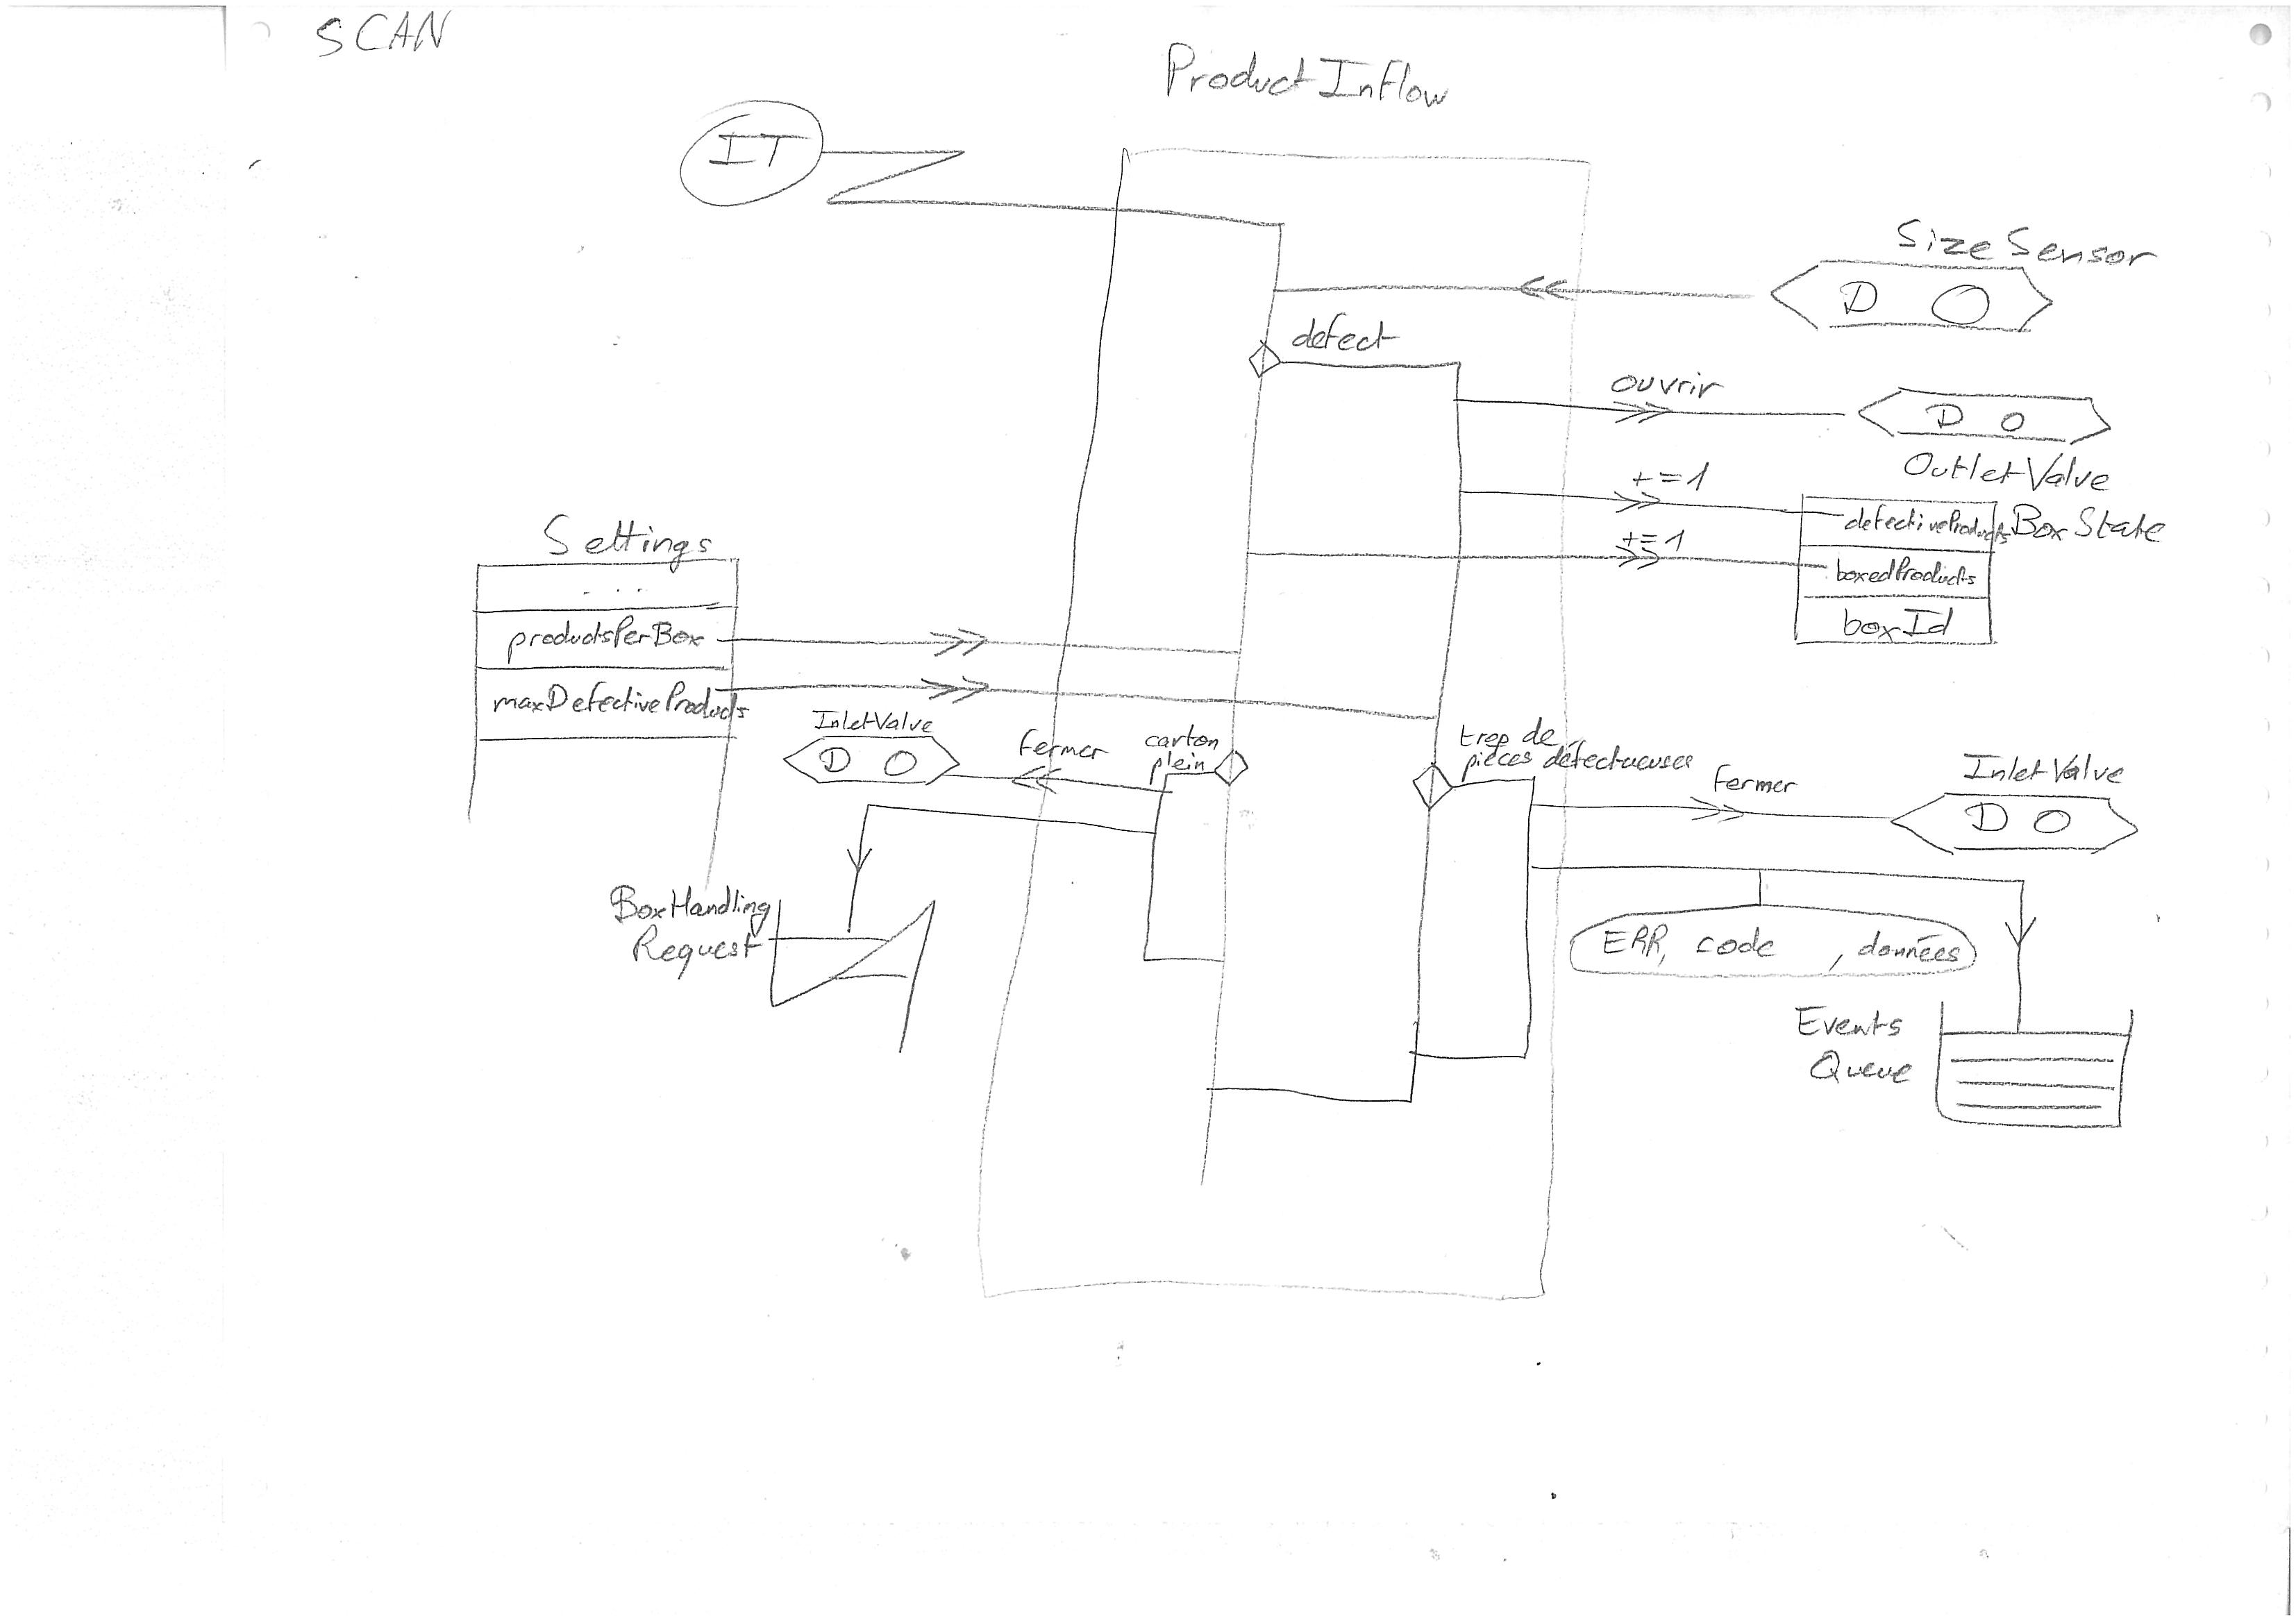 SCAN
Product Inflow
IT
Size Sensor
D O
defect
ouvrir
D O
Outlet Valve
+=1
defectiveProducts
Box State
+=1
boxedProducts
boxId
Settings
...
productsPerBox
maxDefectiveProducts
InletValve
D O
fermer
carton
plein
trop de
pièces défectueuses
fermer
Inlet Valve
D O
BoxHandling
Request
ERR, code , données
Events
Queue